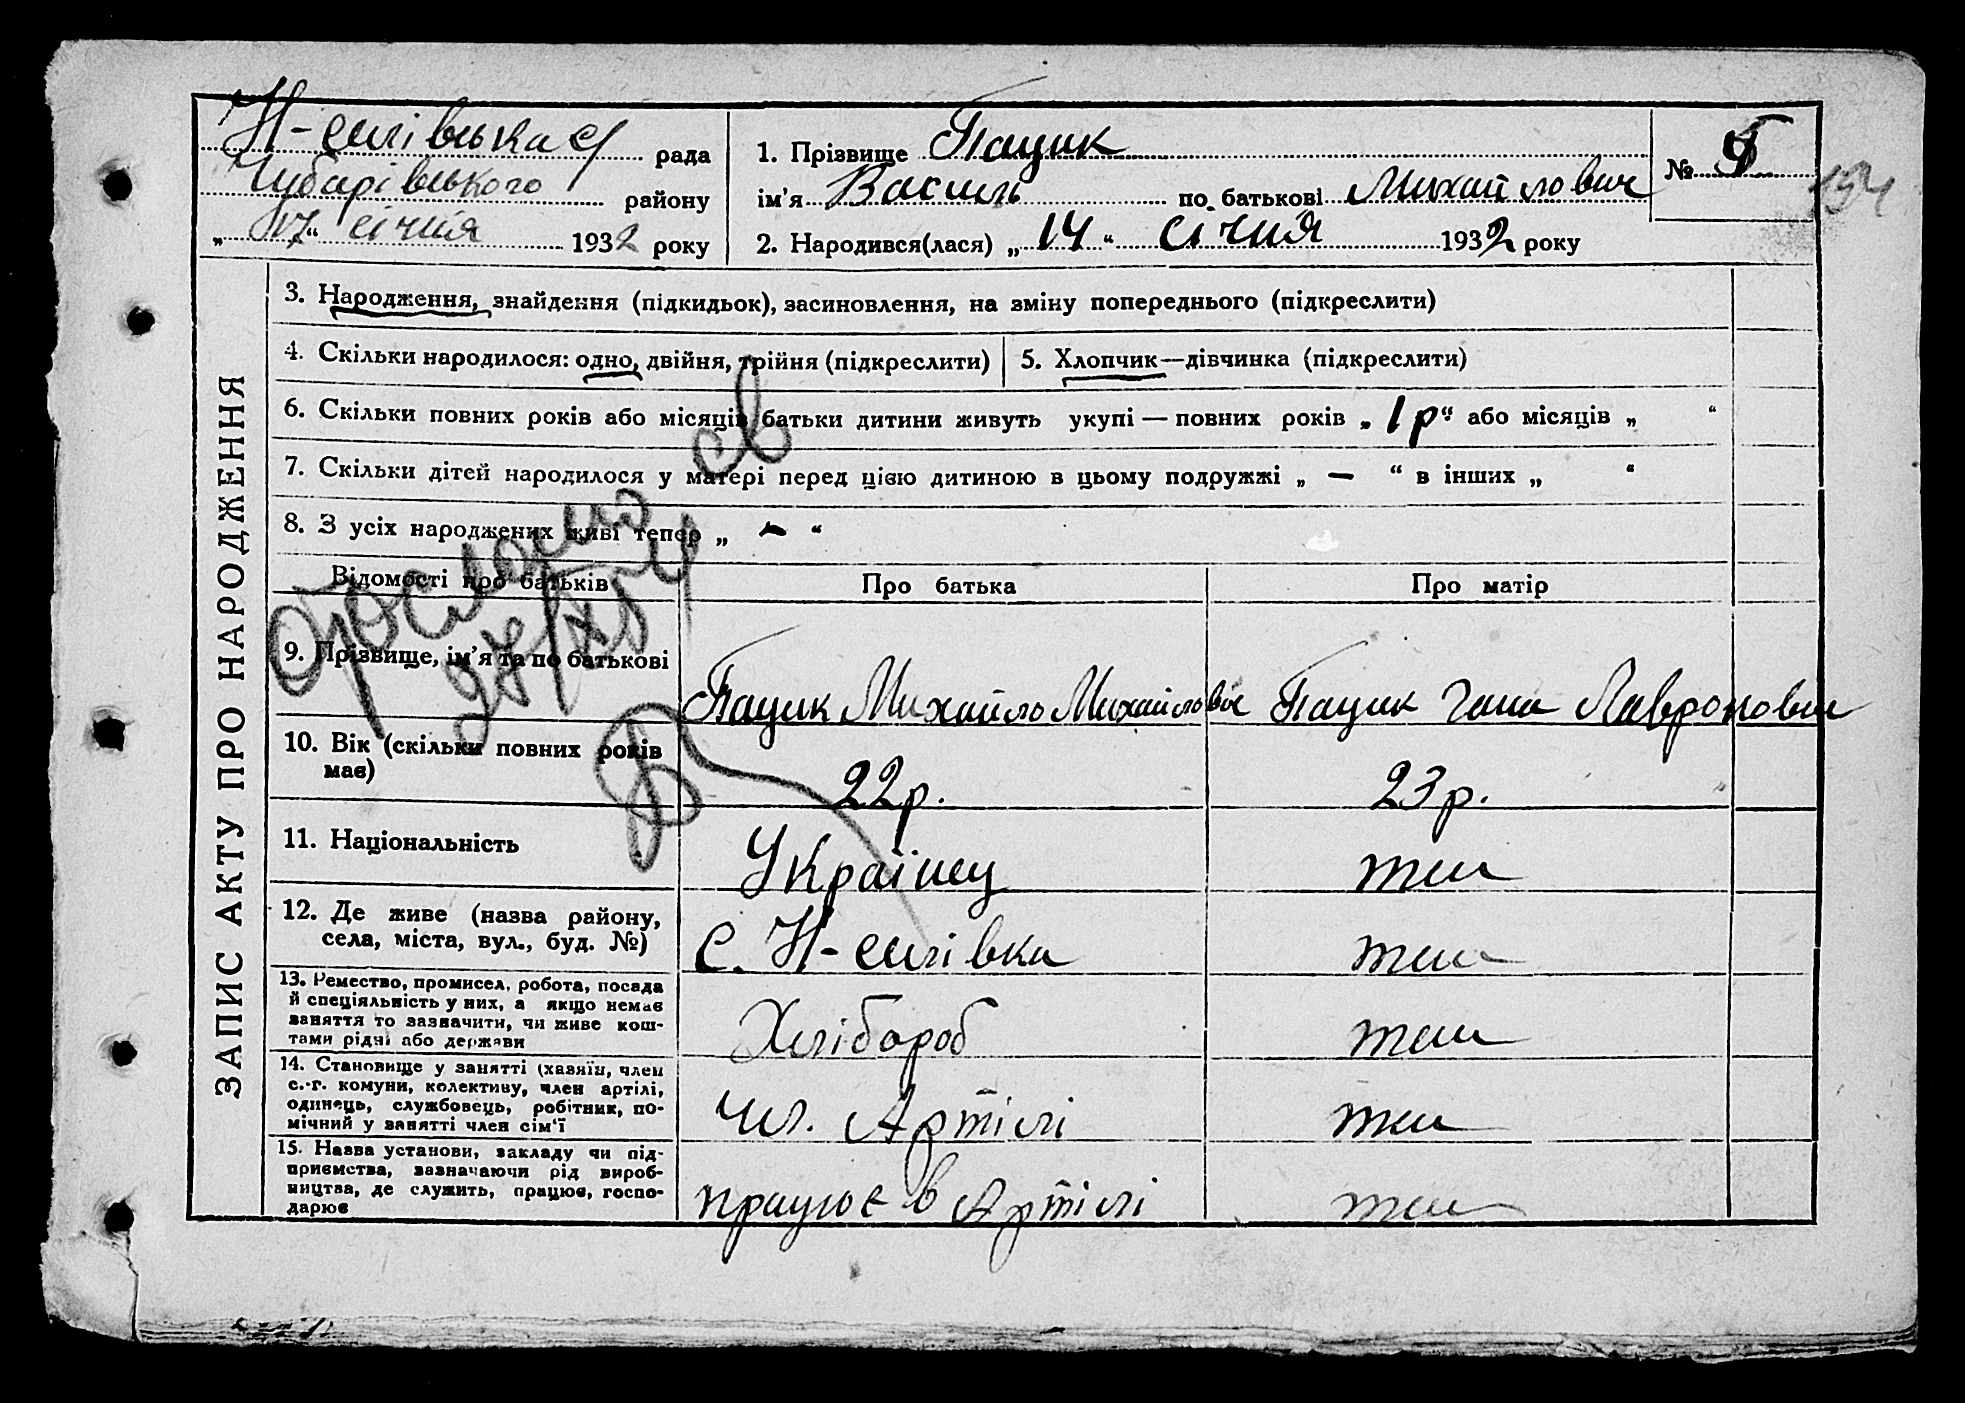 Н-силівська с/ рада
Чубарівського району
„17“ січня 1932 року
1. Прізвище Пацик
ім'я Василь по батькові Михайлович
2. Народився(лася) „14“ січня 1932 року
№ 5
154
ЗАПИС АКТУ ПРО НАРОДЖЕННЯ
3. Народження, знайдення (підкидьок), засиновлення, на зміну попереднього (підкреслити)
4. Скільки народилося: одно, двійня, трійня (підкреслити)
5. Хлопчик—дівчинка (підкреслити)
6. Скільки повних років або місяців батьки дитини живуть укупі — повних років „1р“ або місяців „ “
7. Скільки дітей народилося у матері перед цією дитиною в цьому подружжі „ — “ в інших „ “
8. З усіх народжених живі тепер „ - “
Відомості про батьків
Про батька
Про матір
9. Прізвище, ім'я та по батькові
Пацик Михайло Михайлович
Пацик Гана Лавроновна
10. Вік (скільки повних років
має)
22р.
23р.
11. Національність
Українец
теж
12. Де живе (назва району,
села, міста, вул., буд. №)
С. Н-силівка
теж
13. Ремество, промисел, робота, посада
й спеціяльність у них, а якщо немає
заняття то зазначити, чи живе кош-
тами рідні або держави
Хлібороб
теж
14. Становище у занятті (хазяїн, член
с.-г. комуни, колективу, член артілі,
одинець, службовець, робітник, по-
мічний у занятті член сім'ї
чл. Артілі
теж
15. Назва установи, закладу чи під-
приємства, зазначаючи рід вироб-
ництва, де служить, працює, госпо-
дарює
працює в Артілі
теж